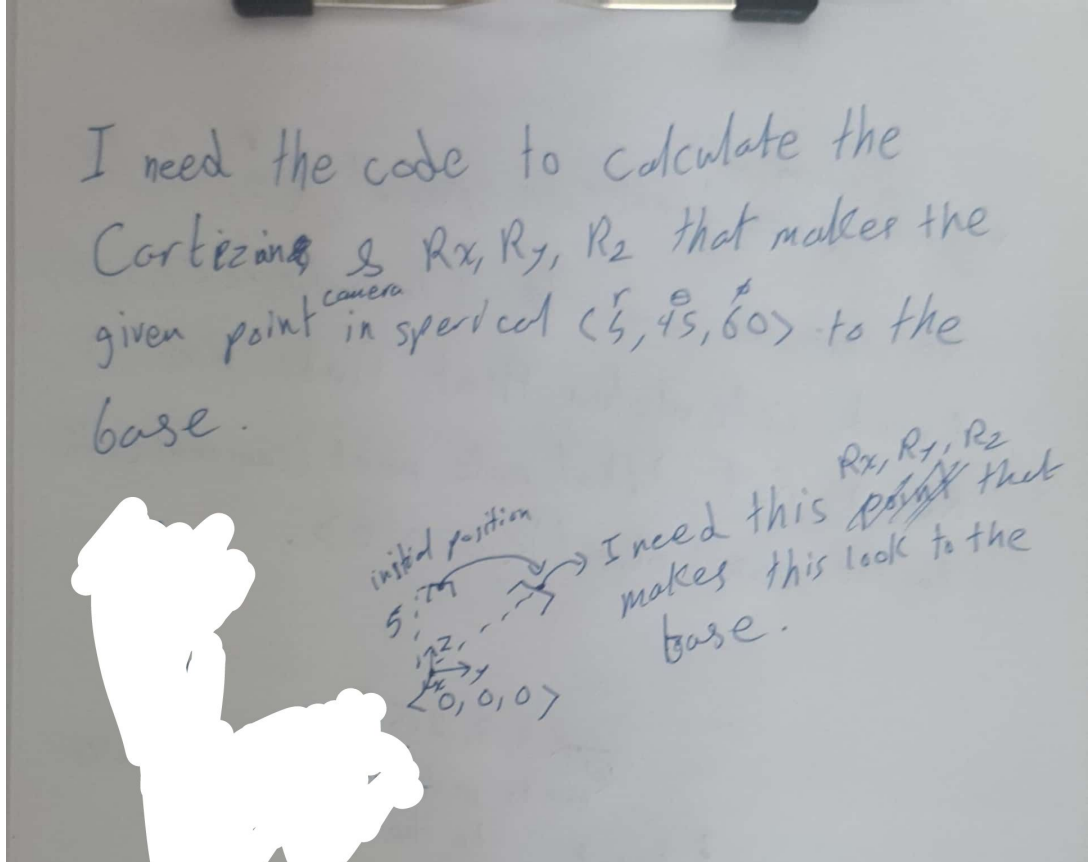 I need the code to calculate the
Cartezian & Rx, Ry, Rz that makes the
camera r θ φ
given point in sperical <5, 45, 60> to the
base.
Rx, Ry, Rz
I need this point that
makes this look to the
base.
initial position
5
z
y
x
<0, 0, 0>